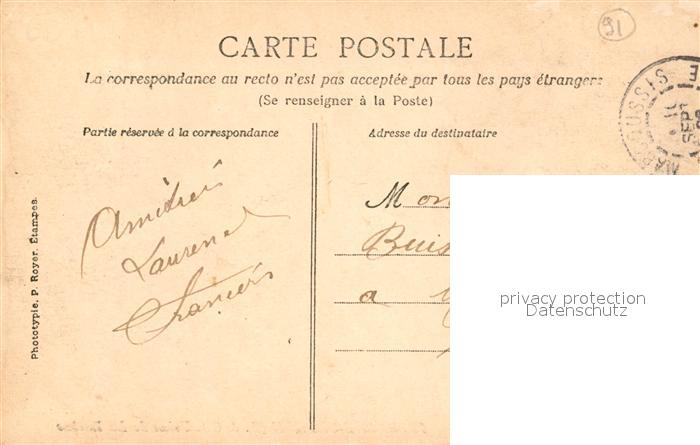 91
CARTE POSTALE
La correspondance au recto n'est pas acceptée par tous les pays étrangers
(Se renseigner à la Poste)
Partie réservée à la correspondance
Adresse du destinataire
MARCOUSSIS
11
SEPT
Amitiés
Laurent
Francis
Phototypie. P. Royer. Étampes.
privacy protection
Datenschutz